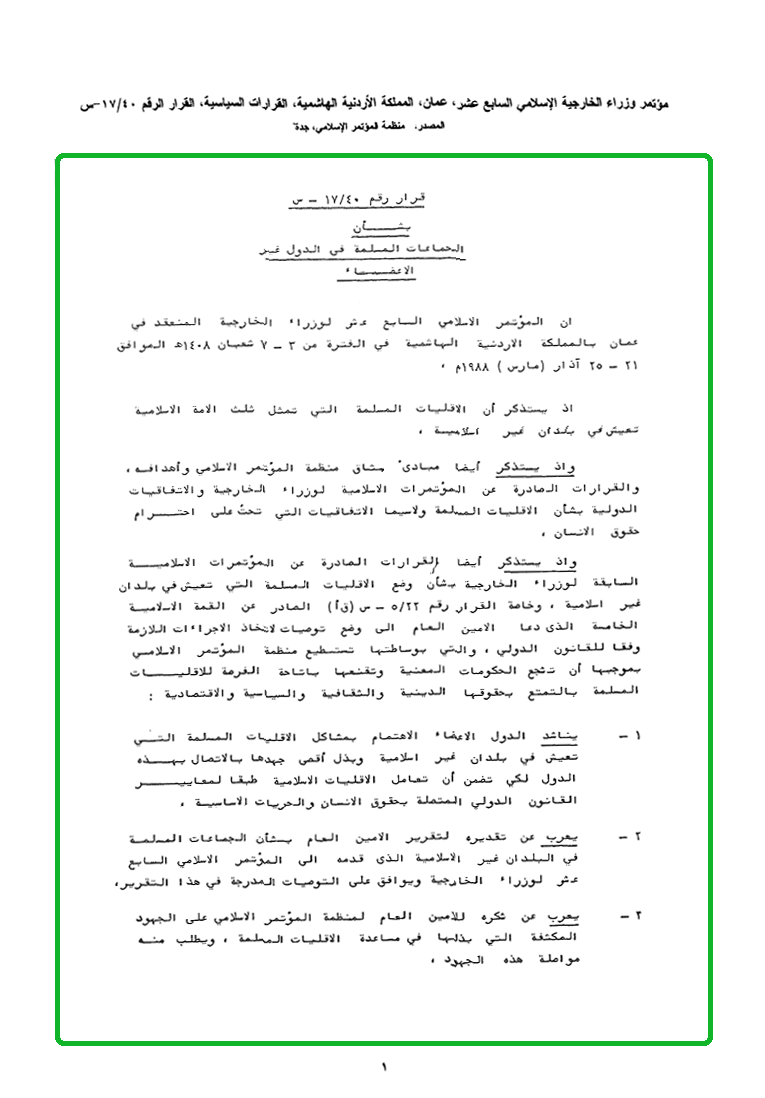 مؤتمر وزراء الخارجية الإسلامي السابع عشر، عمان، المملكة الأردنية الهاشمية، القرارات السياسية، القرار الرقم ١٧/٤٠-س
المصدر. منظمة المؤتمر الإسلامي، جدة
قرار رقم ١٧/٤٠ – س
بشأن
الجماعات المسلمة في الدول غير
الاعضاء
ان المؤتمر الاسلامي السابع عشر لوزراء الخارجية المنعقد في
عمان بالمملكة الاردنية الهاشمية في الفترة من ٣ – ٧ شعبان ١٤٠٨هـ الموافق
٢١ – ٢٥ آذار (مارس) ١٩٨٨م ،
اذ يستذكر أن الاقليات المسلمة التي تمثل ثلث الامة الاسلامية
تعيش في بلدان غير اسلامية ،
واذ يستذكر أيضا مبادئ ميثاق منظمة المؤتمر الاسلامي وأهدافه ،
والقرارات الصادرة عن المؤتمرات الاسلامية لوزراء الخارجية والاتفاقيات
الدولية بشأن الاقليات المسلمة ولاسيما الاتفاقيات التي تحث على احترام
حقوق الانسان ،
واذ يستذكر أيضا القرارات الصادرة عن المؤتمرات الاسلامية
السابقة لوزراء الخارجية بشأن وضع الاقليات المسلمة التي تعيش في بلدان
غير اسلامية ، وخاصة القرار رقم ٥/٢٢ – س (ق أ) الصادر عن القمة الاسلامية
الخامسة الذى دعا الامين العام الى وضع توصيات لاتخاذ الاجراءات اللازمة
وفقا للقانون الدولي ، والتي بوساطتها تستطيع منظمة المؤتمر الاسلامي
بموجبها أن تشجع الحكومات المعنية وتقنعها باتاحة الفرصة للاقليات
المسلمة بالتمتع بحقوقها الدينية والثقافية والسياسية والاقتصادية :
١ – يناشد الدول الاعضاء الاهتمام بمشاكل الاقليات المسلمة التي
تعيش في بلدان غير اسلامية وبذل أقصى جهدها بالاتصال بهذه
الدول لكي تضمن أن تعامل الاقليات الاسلامية طبقا لمعايير
القانون الدولي المتصلة بحقوق الانسان والحريات الاساسية ،
٢ – يعرب عن تقديره لتقرير الامين العام بشأن الجماعات المسلمة
في البلدان غير الاسلامية الذى قدمه الى المؤتمر الاسلامي السابع
عشر لوزراء الخارجية ويوافق على التوصيات المدرجة في هذا التقرير،
٣ – يعرب عن شكره للامين العام لمنظمة المؤتمر الاسلامي على الجهود
المكثفة التي بذلها في مساعدة الاقليات المسلمة ، ويطلب منه
مواصلة هذه الجهود ،
١